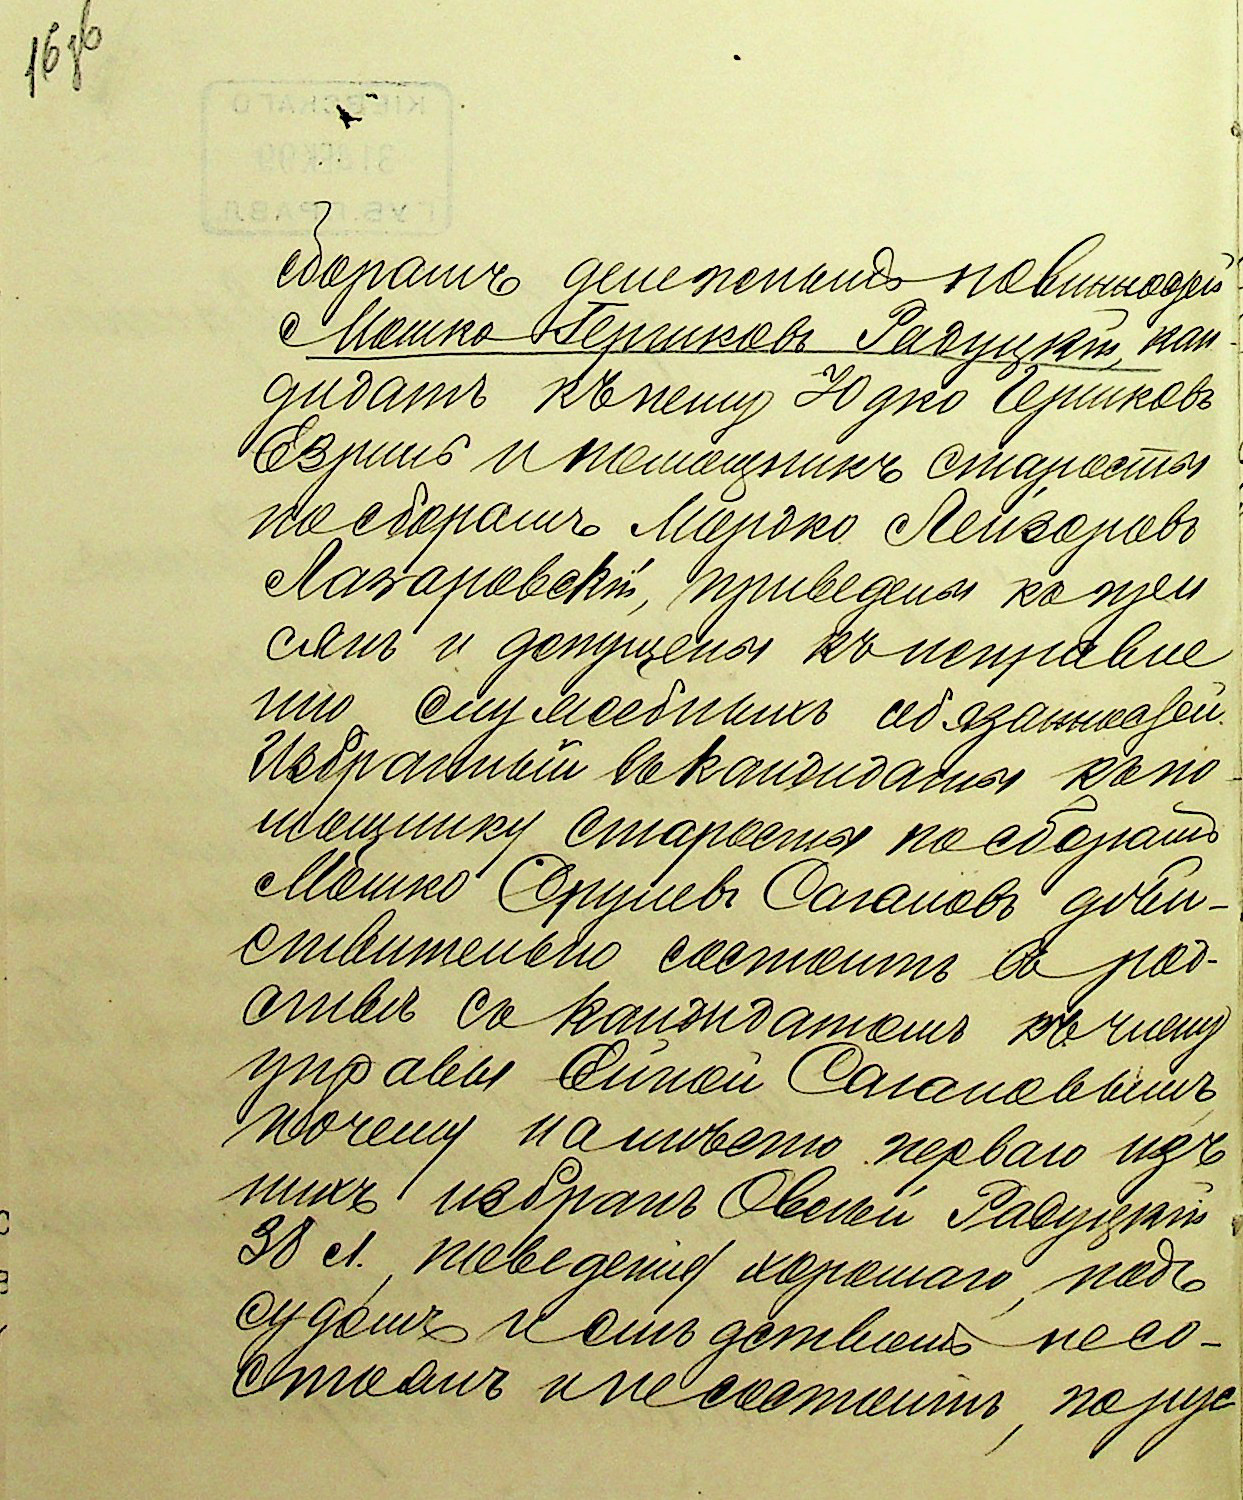 16 об
КІЕВСКАГО
31 ДЕК 09
ГУБ. ПРАВЛ
сборамъ денежныхъ повинностей
Мошко Гершковъ Радуцкій, кан-
дидатъ къ нему Юдко Гершковъ
и помощникъ старосты
по сборамъ Мордко Лейзоровъ
Лазаровскій, приведены къ при
сягѣ и допущены къ исправле
нію служебныхъ обязанностей.
Избранный въ кандидаты къ по-
мощнику старосты по сборамъ
Мошко Срулевъ Сагановъ дѣй-
ствительно состоитъ въ род-
ствѣ съ кандидатомъ къ члену
управы Сагановымъ,
почему на мѣсто перваго изъ
нихъ избранъ Овсей Радуцкій
38 л., поведенія хорошаго, подъ
судомъ и слѣдствіемъ не со-
стоялъ и не состоитъ, по рус